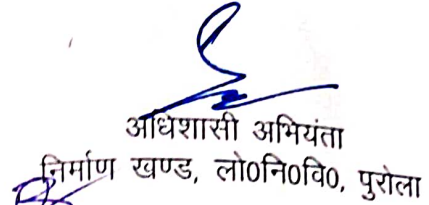 अधिशासी अभियंता
निर्माण खण्ड, लो0नि0वि0, पुरोला